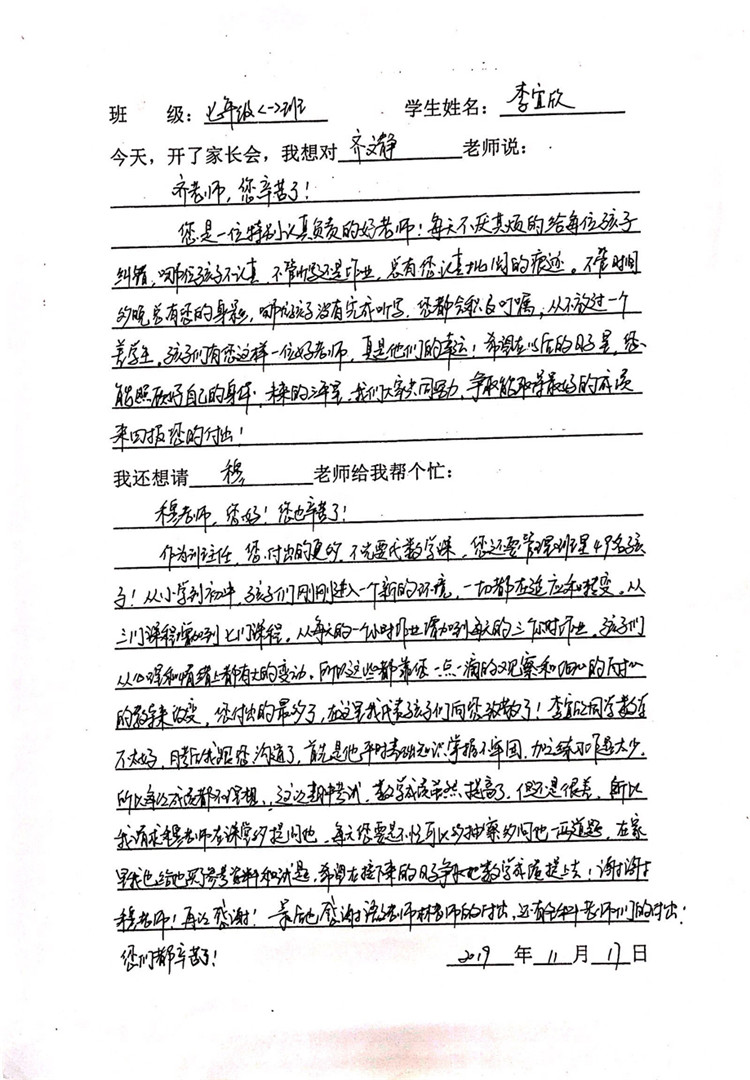 班 级：七年级<一>班 学生姓名：李宜欣
今天，开了家长会，我想对 齐文静 老师说：
齐老师，您辛苦了！
您是一位特别认真负责的好老师！每天不厌其烦的给每位孩子
纠错，哪位孩子不认真，不管听写还是作业，总有您认真批阅的痕迹。不管时间
多晚总有您的身影，哪位孩子没有完成听写，您都会私自叮嘱，从不放过一个
差学生，孩子们有您这样一位好老师，真是他们的幸运！希望在以后的日子里，您
能照顾好自己的身体，未来的三年里，我们大家共同努力，争取能取得最好的成绩
来回报您的付出！
我还想请 穆 老师给我帮个忙：
穆老师，您好！您也辛苦了！
作为班主任，您付出的更多，不光要代数学课，您还要管理班里49名孩
子！从小学到初中，孩子们刚刚进入一个新的环境，一切都在适应和改变。从
三门课程增加到七门课程，从每天的一个小时作业增加到每天的三个小时作业，孩子们
从心理和情绪上都有大的变动，所以这些都靠您一点一滴的观察和细心的
的教导来改变，您付出的最多了，在这里我代表孩子们向您致敬了！李宜欣同学数学
不太好，月考后我跟您沟通了，首先是他平时基础知识掌握不牢固，加之练习题太少，
所以每次成绩都不理想，这次期中考试，数学成绩虽然提高了，但还是很差，所以
我请求穆老师在课堂多提问他，每天您要是不忙可以多抽察多问他一两道题，在家
里我也给他买了参考资料和试题，希望在接下来的日子争取把数学成绩提上去！谢谢
穆老师！再次感谢！最后也感谢语文老师林老师的付出，还有各科老师们的付出！
您们都辛苦了！ 2019 年 11 月 17 日